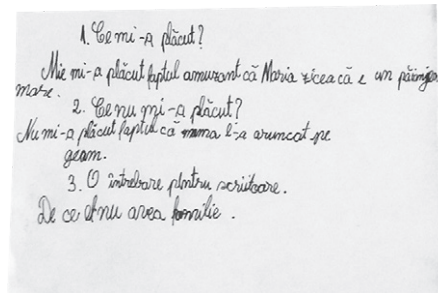 1. Ce mi-a plăcut?
Mie mi-a plăcut faptul amuzant că Maria zicea că e un păianjen
mare.
2. Ce nu mi-a plăcut?
Nu mi-a plăcut faptul că mama l-a aruncat pe
geam.
3. O întrebare pentru scriitoare.
De ce el nu avea familie.